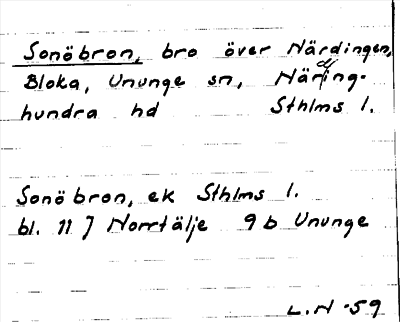 Sonöbron, bro över Närdingen,
Bloka, Ununge sn, Närding-
hundra hd Sthlms l.
Sonöbron, ek Sthlms l.
bl. 11 J Norrtälje 9 b Ununge
L.N -59